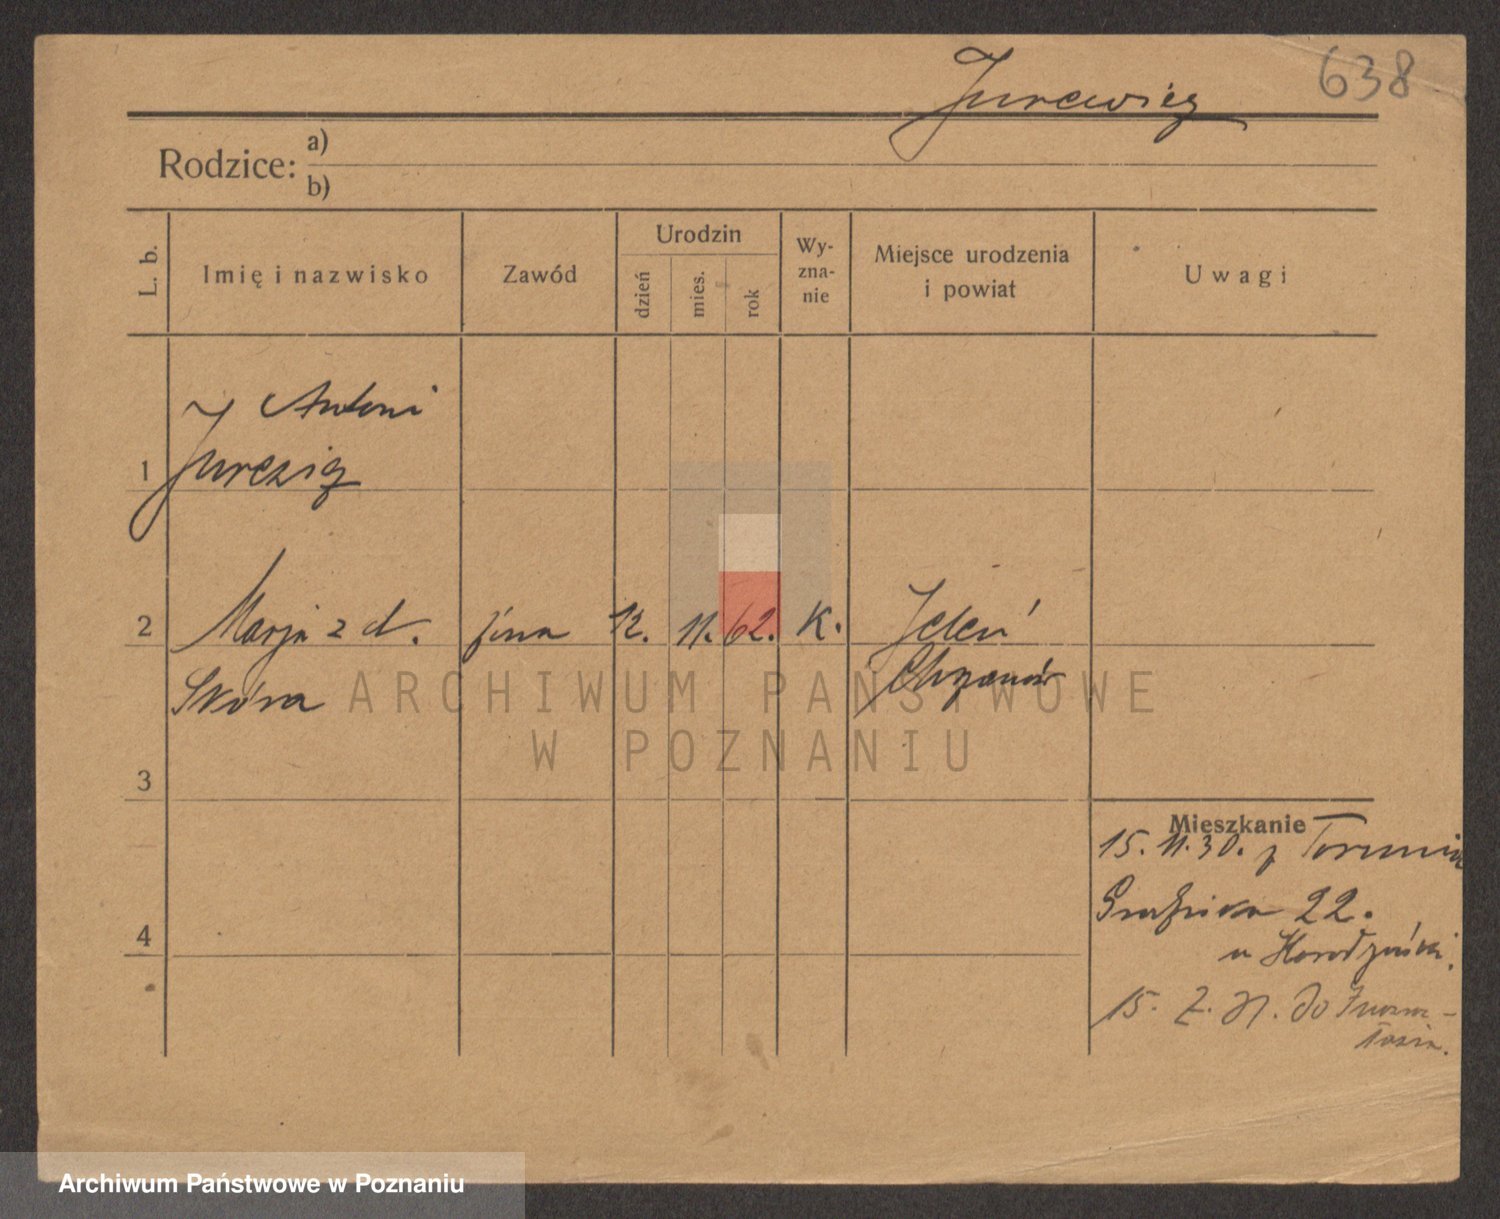 Jurewicz 638
Rodzice: a)
b)
L. b. Imię i nazwisko Zawód Urodzin dzień mies. rok Wy-zna-nie Miejsce urodzenia i powiat Uwagi
Antoni
1
2 Marja z d. żona 12. 11. 62. K. Jeleń
Skóra Chrzanów
ARCHIWUM PAŃSTWOWE
W POZNANIU
3
Mieszkanie
15. 11. 30. z Torunia
22.
4
u
15. do
Archiwum Państwowe w Poznaniu